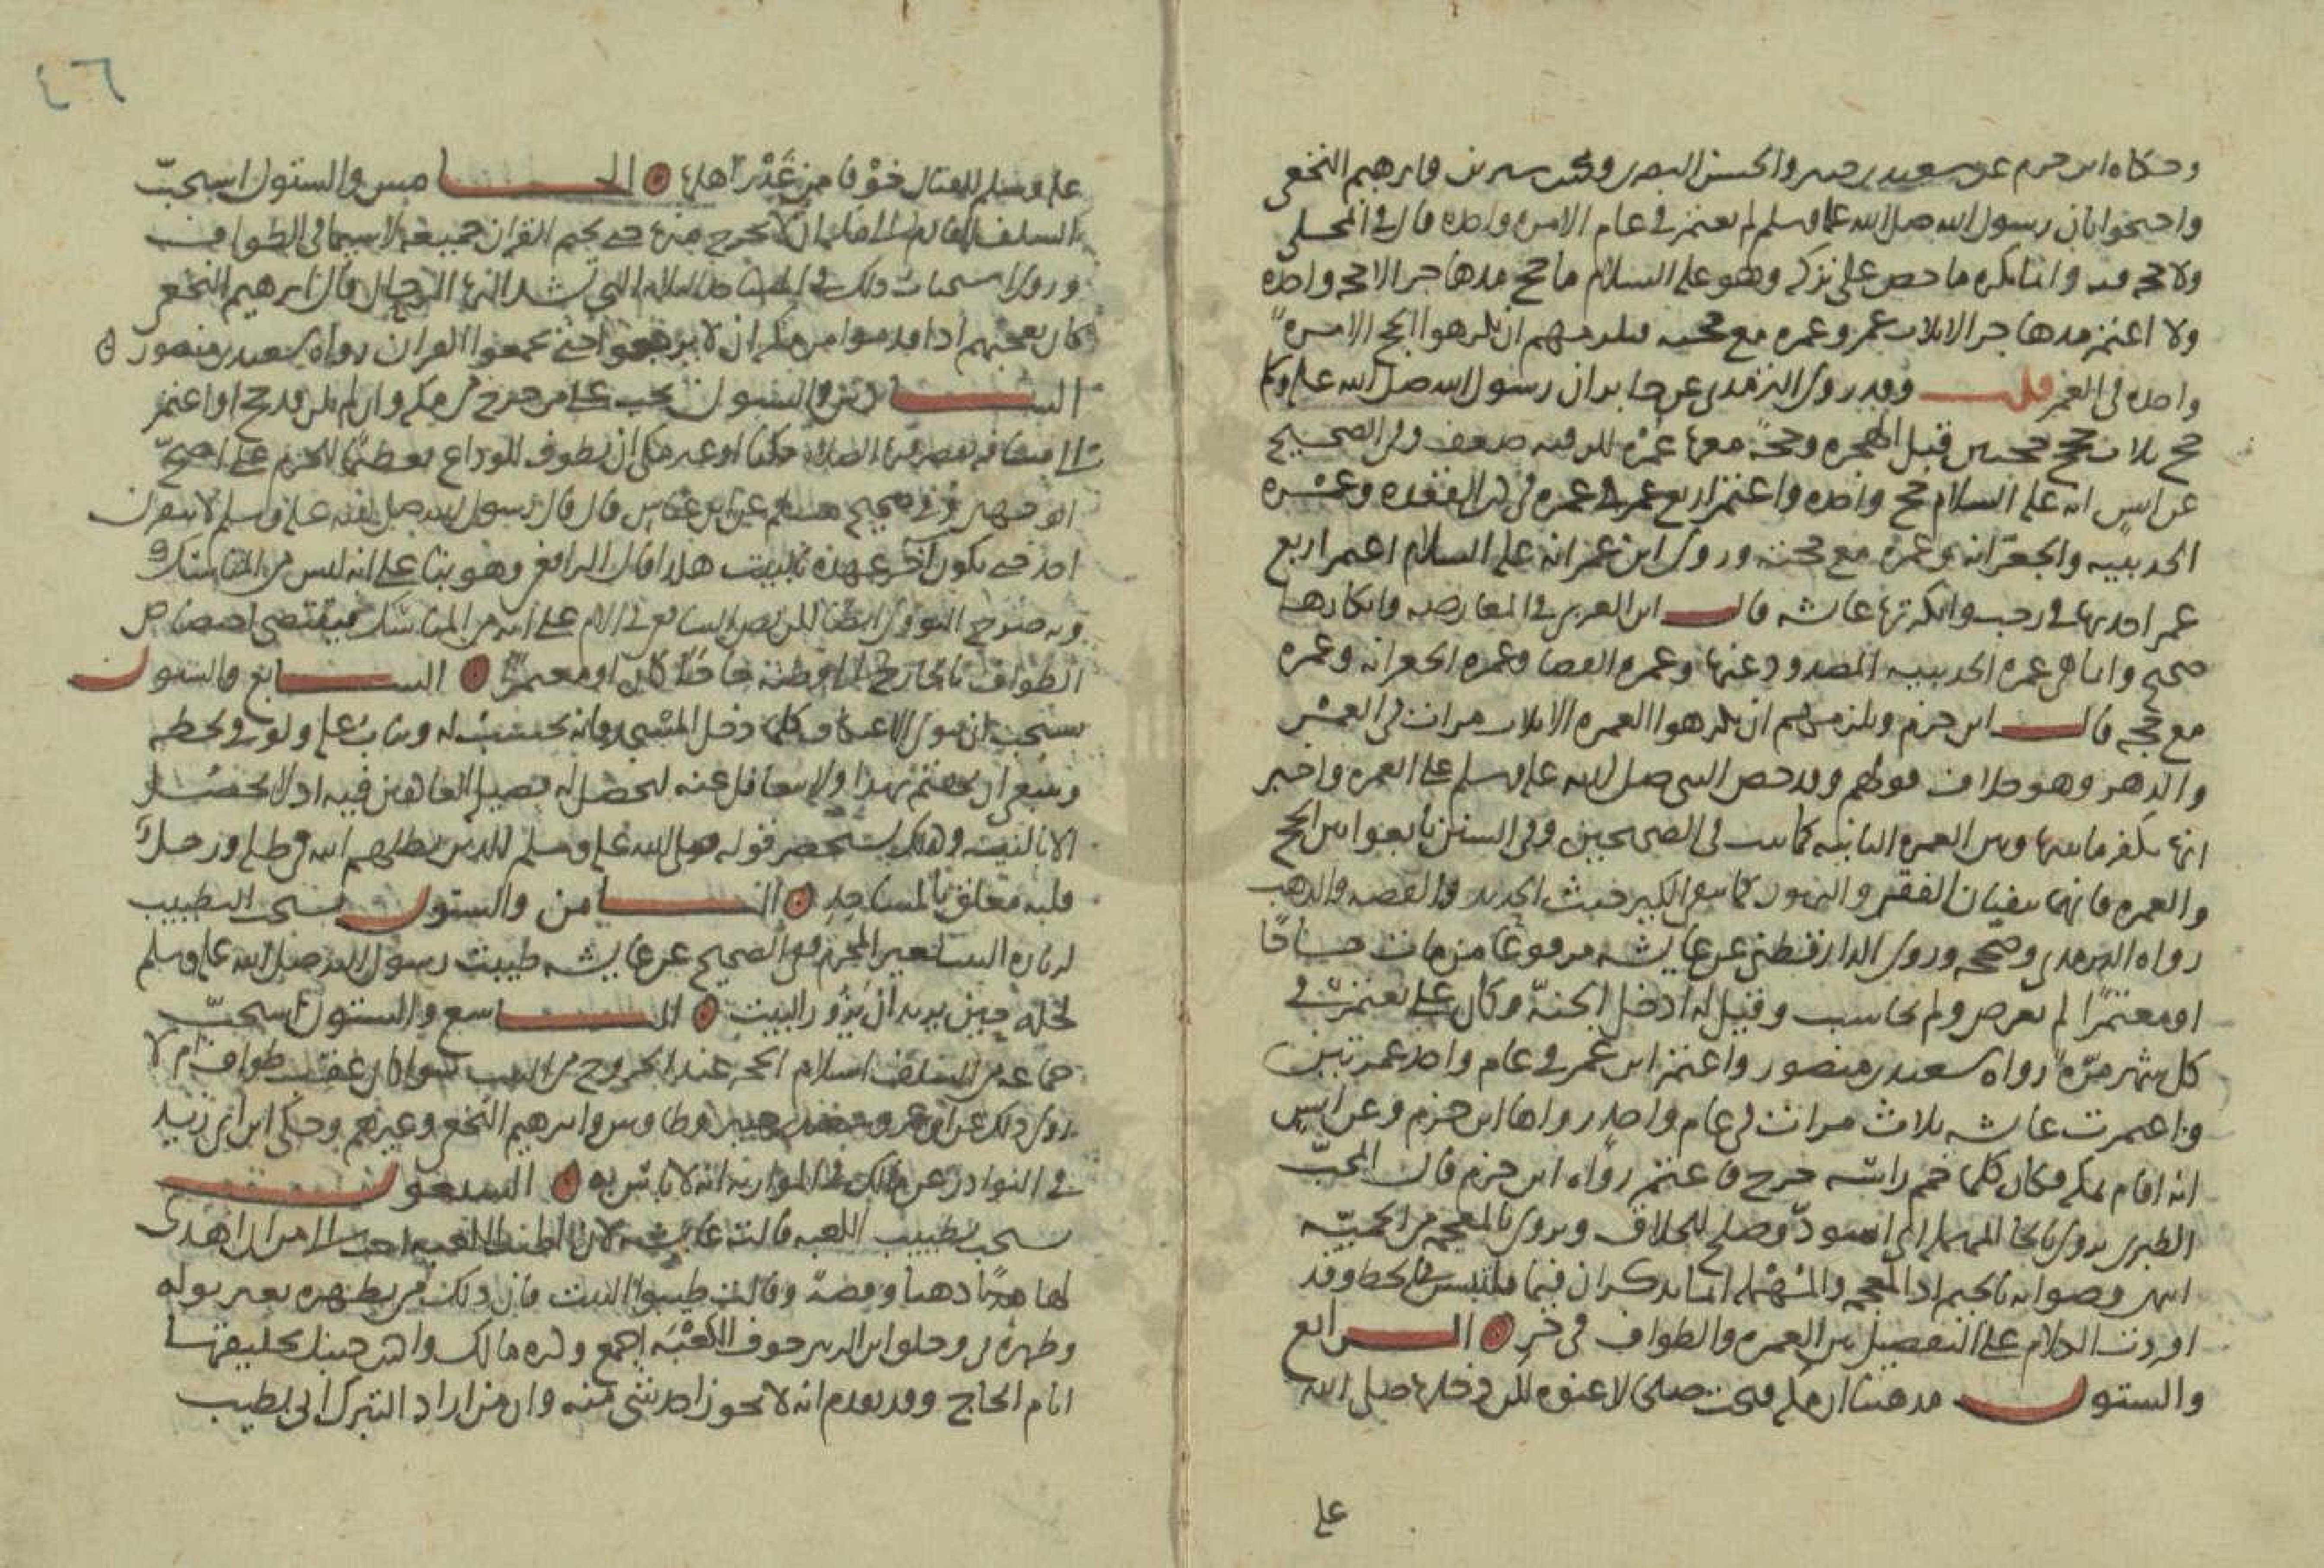 وحكاه ابن حزم عن سعيد بن جبير والحسن البصري ومحمد بن سيرين وابرهيم النخعي
واحتجوا بان رسول الله صلى الله عليه وسلم لم يعتمر في عام الا مرة واحدة قال في المحلى
ولا حجة فيه وانما يكره ما حض على تركه وهو عليه السلام ما حج مذ هاجر الا حجة واحدة
ولا اعتمر مذ هاجر الا ثلاث عمر وعمرة مع حجته فيلزمهم ان يكرهوا الحج الا مرة
واحدة في العمر قلت وقد روى الترمذي عن جابر ان رسول الله صلى الله عليه وسلم
حج ثلاث حجج حجتين قبل الهجرة وحجة معها عمرة لكن فيه ضعف وفي الصحيح
عن انس انه عليه السلام حج واحدة واعتمر اربع عمر عمرة في ذي القعدة وعمرة
الحديبية والجعرانة وعمرة مع حجته وروى ابن عمر انه عليه السلام اعتمر اربع
عمر احديها في رجب وانكرتها عائشة قال ابن العربي في المعارضة وانكارها
صحيح وانما هي عمرة الحديبية المصدود عنها وعمرة القضا وعمرة الجعرانة وعمرة
مع حجه قال ابن حزم ويلزمهم ان يكرهوا العمرة الا ثلاث مرات في العمر
والدهر وهو خلاف قولهم وقد حض النبي صلى الله عليه وسلم على العمرة واخبر
انها تكفر ما بينها وبين العمرة الثانية كما ثبت في الصحيحين وفي السنن تابعوا بين الحج
والعمرة فانهما ينفيان الفقر والذنوب كما ينفي الكير خبث الحديد والفضة والذهب
رواه الترمذي وصححه وروى الدارقطني عن عايشة مرفوعا من مات حاجا
او معتمرا لم يعرض ولم يحاسب وقيل له ادخل الجنة وكان علي يعتمر في
كل شهر مرة رواه سعيد بن منصور واعتمر ابن عمر في عام واحد عمرتين
واعتمرت عائشة ثلاث مرات في عام واحد رواها ابن حزم وعن انس
انه اقام بمكة فكان كلما حمم راسه خرج فاعتمر رواه ابن حزم قال المحب
الطبري يروى بالحا المهملة اي اسود وصلح للحلاق ويروى بالمعجمة من الحمية
انتهى وصوابه بالجيم اذ المعجم والمهملة انما يذكران فيما يلتبس في الخط وقد
افردت الكلام على التفضيل بين العمرة والطواف في جزء الرابع
والستون مذهبنا ان مكة فتحت صلحا لا عنوة لكن دخلها صلى الله
علي
٤٦
عليه وسلم للقتال خوفا من غدر اهلها الخامس والستون استحب
السلف القادم الى مكة ان لا يخرج منها حتى يختم القران جميعه لا سيما في الطواف
وروي استحباب ذلك في المساجد الثلاثة التي تشد اليها الرحال قال ابرهيم النخعي
كان يعجبهم اذا قدموا من مكة ان لا يرجعوا حتى يختموا القران رواه سعيد بن منصور
السادس والستون يجب على من خرج من مكة وان لم يكن قد حج او اعتمر
الى مسافة تقصر فيها الصلاة مكيا او غير مكي ان يطوف للوداع تعظيما للحرم على اصح
الوجهين وفي صحيح مسلم عن ابن عباس قال قال رسول الله صلى الله عليه وسلم لا ينفرن
احد حتى يكون اخر عهده بالبيت هكذا قال الرافعي وهو بناء على انه ليس من المناسك
وبه صرح النووي ايضا لكن نص الشافعي في الام على انه من المناسك فيقتضي اختصاص
الطواف بالخارج الى وطنه حاجا كان او معتمرا السابع والستون
يستحب ان ينوي الاعتكاف كلما دخل المسجد فانه يحتسب له ويثاب عليه ولو في لحظة
وينبغي ان يهتم بهذا ولا يتغافل عنه ليحصل له فضيلة العاكفين فيه اذ لا يحصل
الا بالنية وهناك يستحضر قوله صلى الله عليه وسلم للذين يظلهم الله في ظله ورجلا
قلبه معلق بالمساجد الثامن والستون يستحب التطيب
لزيارة البيت لغير المحرم ففي الصحيح عن عايشة طيبت رسول الله صلى الله عليه وسلم
لحله حين يريد ان يزور البيت التاسع والستون استحب
جماعة من السلف استلام الحجر عند الخروج من البيت سوا كان عقب طواف ام لا
روي ذلك عن ابن عمر وسعيد بن جبير وطاوس وابرهيم النخعي وغيرهم وحكى ابن ابي زيد
في النوادر عن مالك في الموازية انه لا باس به السبعون
يستحب تطييب الكعبة قالت عايشة لان اطيب الكعبة احب الي من ان اهدي
لها ذهبا وفضة وقالت طيبوا البيت فان ذلك من تطهيره يعني قوله
وطهر بيتي وخلق ابن الزبير جوف الكعبة اجمع وكره مالك تخليقها
ايام الحاج وقد تقدم انه لا يجوز اخذ شي منه وان من اراد التبرك اتى بطيب